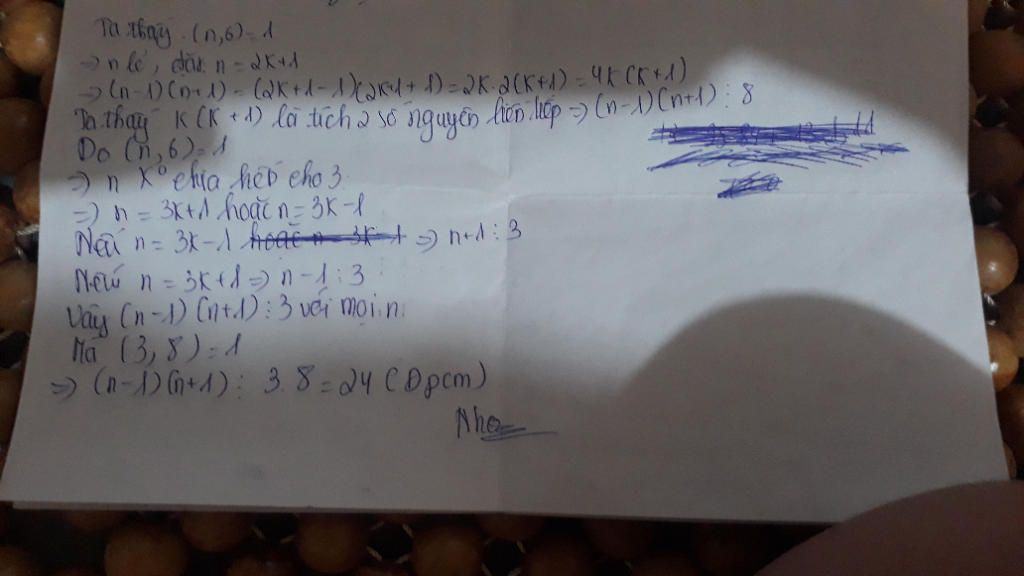 Ta thấy (n,6)=1
=> n lẻ, đặt n = 2K+1
=> (n-1)(n+1) = (2K+1-1)(2K+1+1)=2K.2(K+1)=4K(K+1)
Ta thấy K(K+1) là tích 2 số nguyên liên tiếp => (n-1)(n+1) ⋮ 8
Do (n,6)=1
=> n K° chia hết cho 3
=> n = 3K+1 hoặc n= 3K-1
Nếu n = 3K-1 => n+1 ⋮ 3
Nếu n = 3K+1 => n-1 ⋮ 3
Vậy (n-1)(n+1) ⋮ 3 với mọi n
Mà (3,8)=1
=> (n-1)(n+1) ⋮ 3.8=24 (Đpcm)